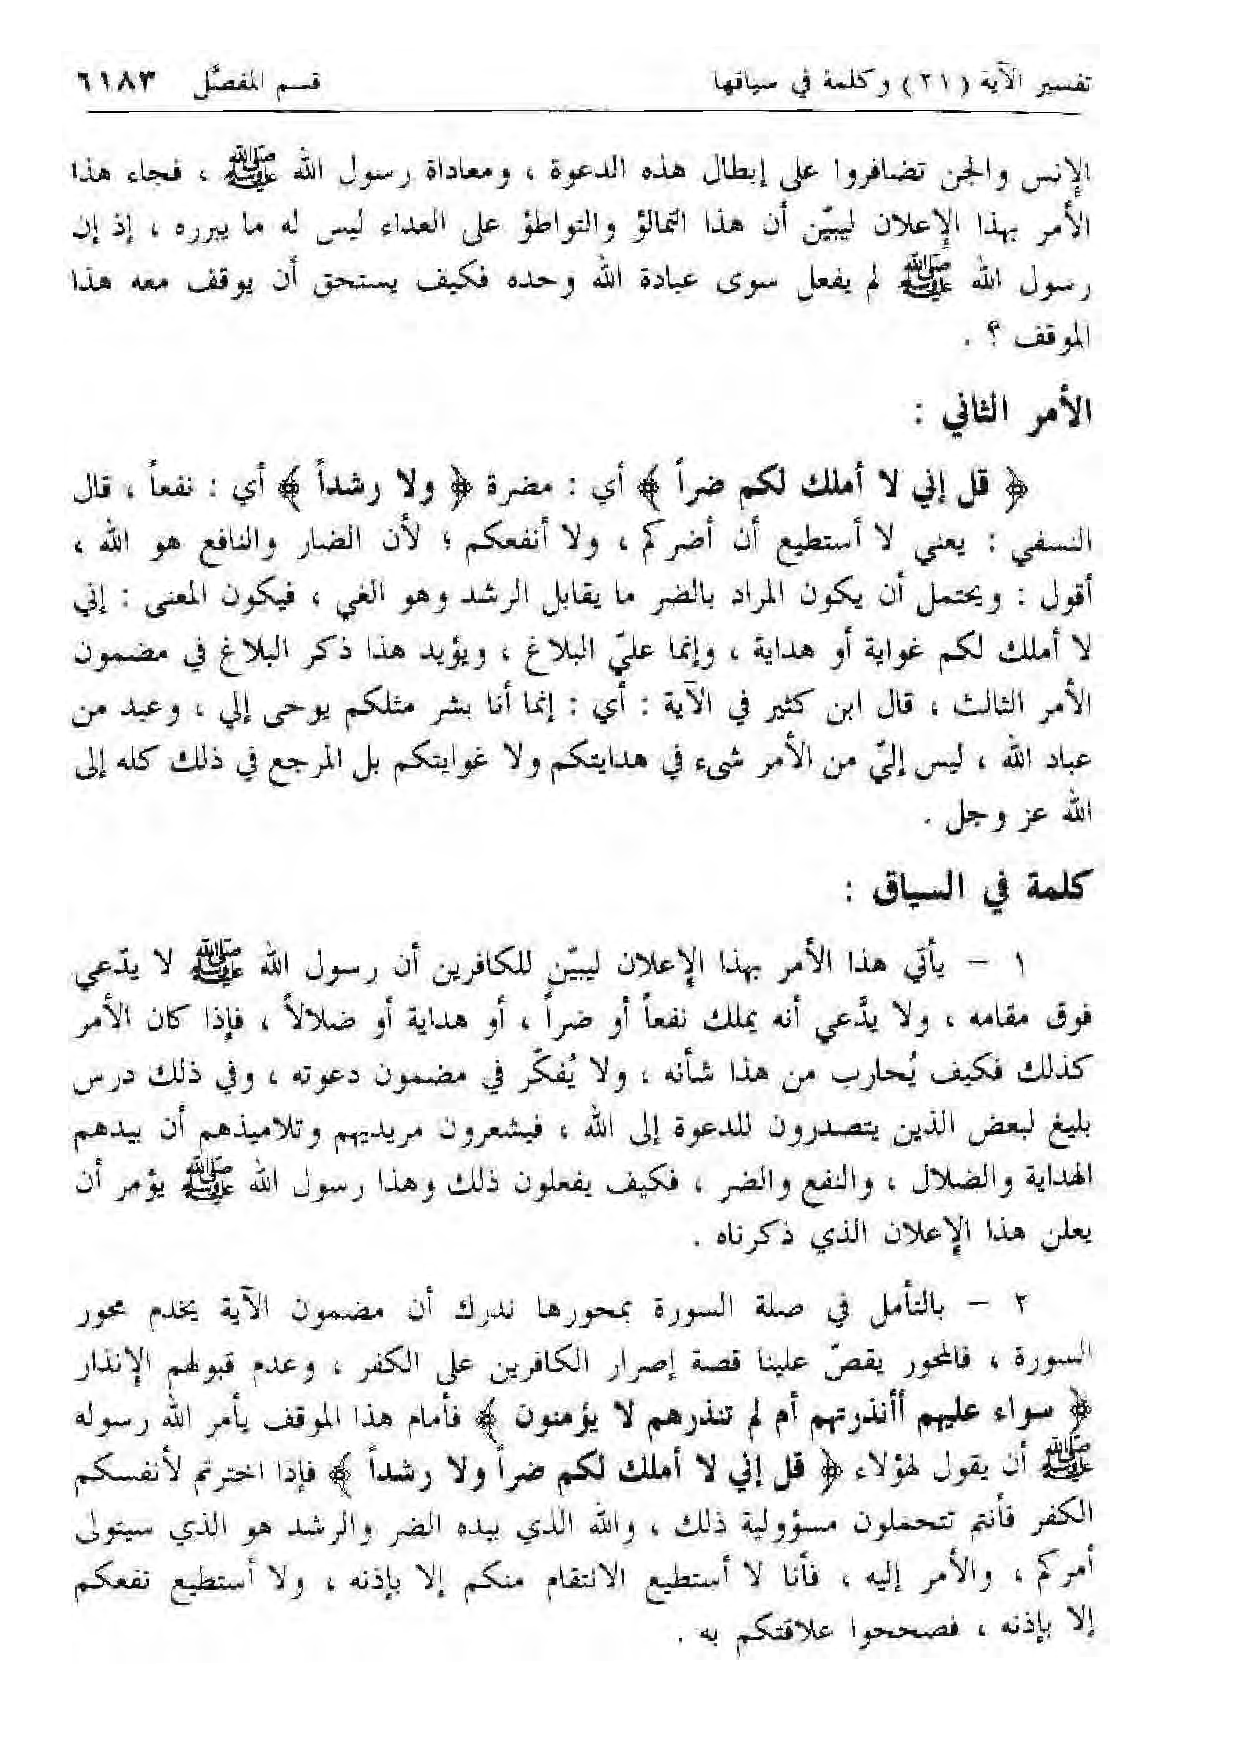 تفسير الآية (٢١) وكلمة في سياقها قسم المفصَّل ٦١٨٣
الإنس والجن تضافروا على إبطال هذه الدعوة ، ومعاداة رسول الله ﷺ ، فجاء هذا
الأمر بهذا الإعلان ليبيّن أن هذا التمالؤ والتواطؤ على العداء ليس له ما يبرره ، إذ إن
رسول الله ﷺ لم يفعل سوى عبادة الله وحده فكيف يستحق أن يوقف معه هذا
الموقف ؟ .
الأمر الثاني :
﴿ قل إني لا أملك لكم ضراً ﴾ أي : مضرة ﴿ ولا رشداً ﴾ أي : نفعاً ، قال
النسفي : يعني لا أستطيع أن أضركم ، ولا أنفعكم ؛ لأن الضار والنافع هو الله ،
أقول : ويحتمل أن يكون المراد بالضر ما يقابل الرشد وهو الغي ، فيكون المعنى : إني
لا أملك لكم غواية أو هداية ، وإنما عليّ البلاغ ، ويؤيد هذا ذكر البلاغ في مضمون
الأمر الثالث ، قال ابن كثير في الآية : أي : إنما أنا بشر مثلكم يوحى إلي ، وعبد من
عباد الله ، ليس إليّ من الأمر شيء في هدايتكم ولا غوايتكم بل المرجع في ذلك كله إلى
الله عز وجل .
كلمة في السياق :
١ – يأتي هذا الأمر بهذا الإعلان ليبيّن للكافرين أن رسول الله ﷺ لا يدّعي
فوق مقامه ، ولا يدَّعي أنه يملك نفعاً أو ضراً ، أو هداية أو ضلالاً ، فإذا كان الأمر
كذلك فكيف يُحارب من هذا شأنه ، ولا يُفكّر في مضمون دعوته ، وفي ذلك درس
بليغ لبعض الذين يتصدرون للدعوة إلى الله ، فيشعرون مريديهم وتلاميذهم أن بيدهم
الهداية والضلال ، والنفع والضر ، فكيف يفعلون ذلك وهذا رسول الله ﷺ يؤمر أن
يعلن هذا الإعلان الذي ذكرناه .
٢ – بالتأمل في صلة السورة بمحورها ندرك أن مضمون الآية يخدم محور
السورة ، فالمحور يقصّ علينا قصة إصرار الكافرين على الكفر ، وعدم قبولهم الإنذار
﴿ سواء عليهم أأنذرتهم أم لم تنذرهم لا يؤمنون ﴾ فأمام هذا الموقف يأمر الله رسوله
ﷺ أن يقول لهؤلاء ﴿ قل إني لا أملك لكم ضراً ولا رشداً ﴾ فإذا اخترتم لأنفسكم
الكفر فأنتم تتحملون مسؤولية ذلك ، والله الذي بيده الضر والرشد هو الذي سيتولى
أمركم ، والأمر إليه ، فأنا لا أستطيع الانتقام منكم إلا بإذنه ، ولا أستطيع نفعكم
إلا بإذنه ، فصححوا علاقتكم به .